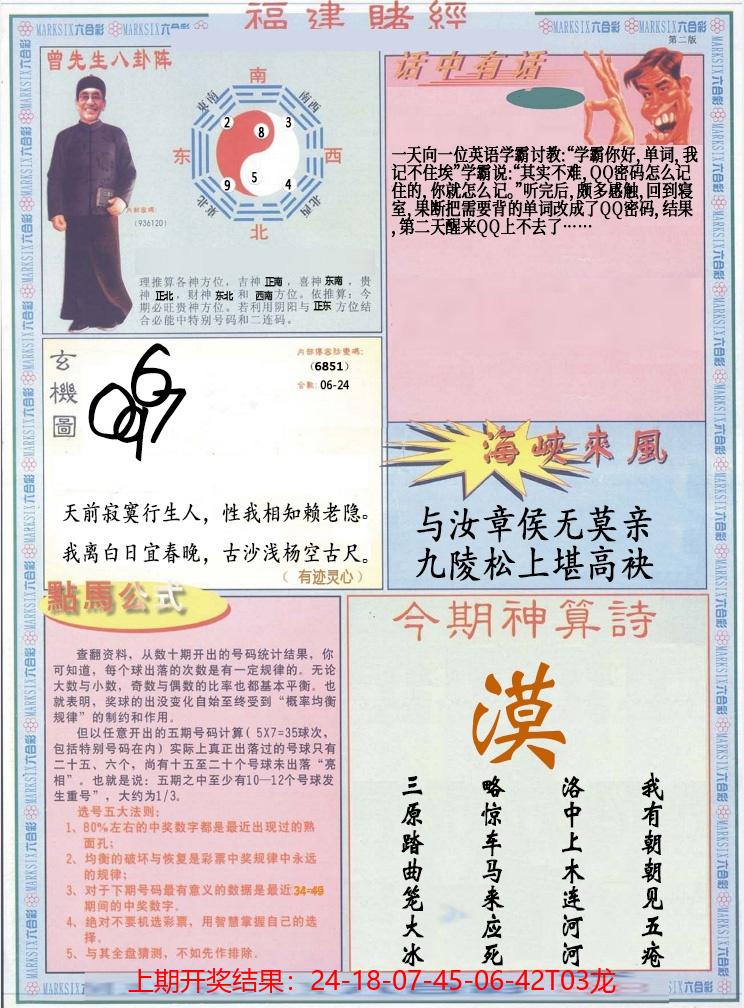 福建賭經
MARKSIX六合彩
MARKSIX六合彩
MARKSIX六合彩
MARKSIX六合彩
第二版
曾先生八卦阵
南
東南
南西
2
8
3
东
西
9
5
4
東北
北西
北
内部密碼:
（936120）
理推算各神方位，吉神 正南 ，喜神 东南 ，贵
神 正北 ，财神 东北 和 西南 方位。依推算：今
期必旺贵神方位。若利用阴阳与 正东 方位结
合必能中特别号码和二连码。
话中有话
一天向一位英语学霸讨教:“学霸你好, 单词, 我
记不住埃”学霸说:“其实不难, QQ密码怎么记
住的, 你就怎么记。”听完后, 颇多感触, 回到寝
室, 果断把需要背的单词改成了QQ密码, 结果
, 第二天醒来QQ上不去了……
玄
機
圖
（6851）
合数: 06-24
天前寂寞行生人，性我相知赖老隐。
我离白日宜春晚，古沙浅杨空古尺。
（ 有迹灵心 ）
海峽來風
与汝章侯无莫亲
九陵松上堪高袂
點馬公式
查翻资料，从数十期开出的号码统计结果，你
可知道，每个球出落的次数是有一定规律的。无论
大数与小数，奇数与偶数的比率也都基本平衡。也
就表明，奖球的出没变化自始至终受到“概率均衡
规律”的制约和作用。
但以任意开出的五期号码计算（ 5X7=35球次，
包括特别号码在内）实际上真正出落过的号球只有
二十五、六个，尚有十五至二十个号球未出落“亮
相”。也就是说：五期之中至少有10—12个号球发
生重号”，大约为1/3。
选号五大法则：
1、80%左右的中奖数字都是最近出现过的熟
面孔；
2、均衡的破坏与恢复是彩票中奖规律中永远
的规律；
3、对于下期号码最有意义的数据是最近34=49
期间的中奖数字。
4、绝对不要机选彩票，用智慧掌握自己的选
择。
5、与其全盘猜测，不如先作排除．
今期神算詩
漠
我有朝朝见五疮
洛中上木连河河
略惊车马来应死
三原踏曲笼大冰
上期开奖结果：24-18-07-45-06-42T03龙